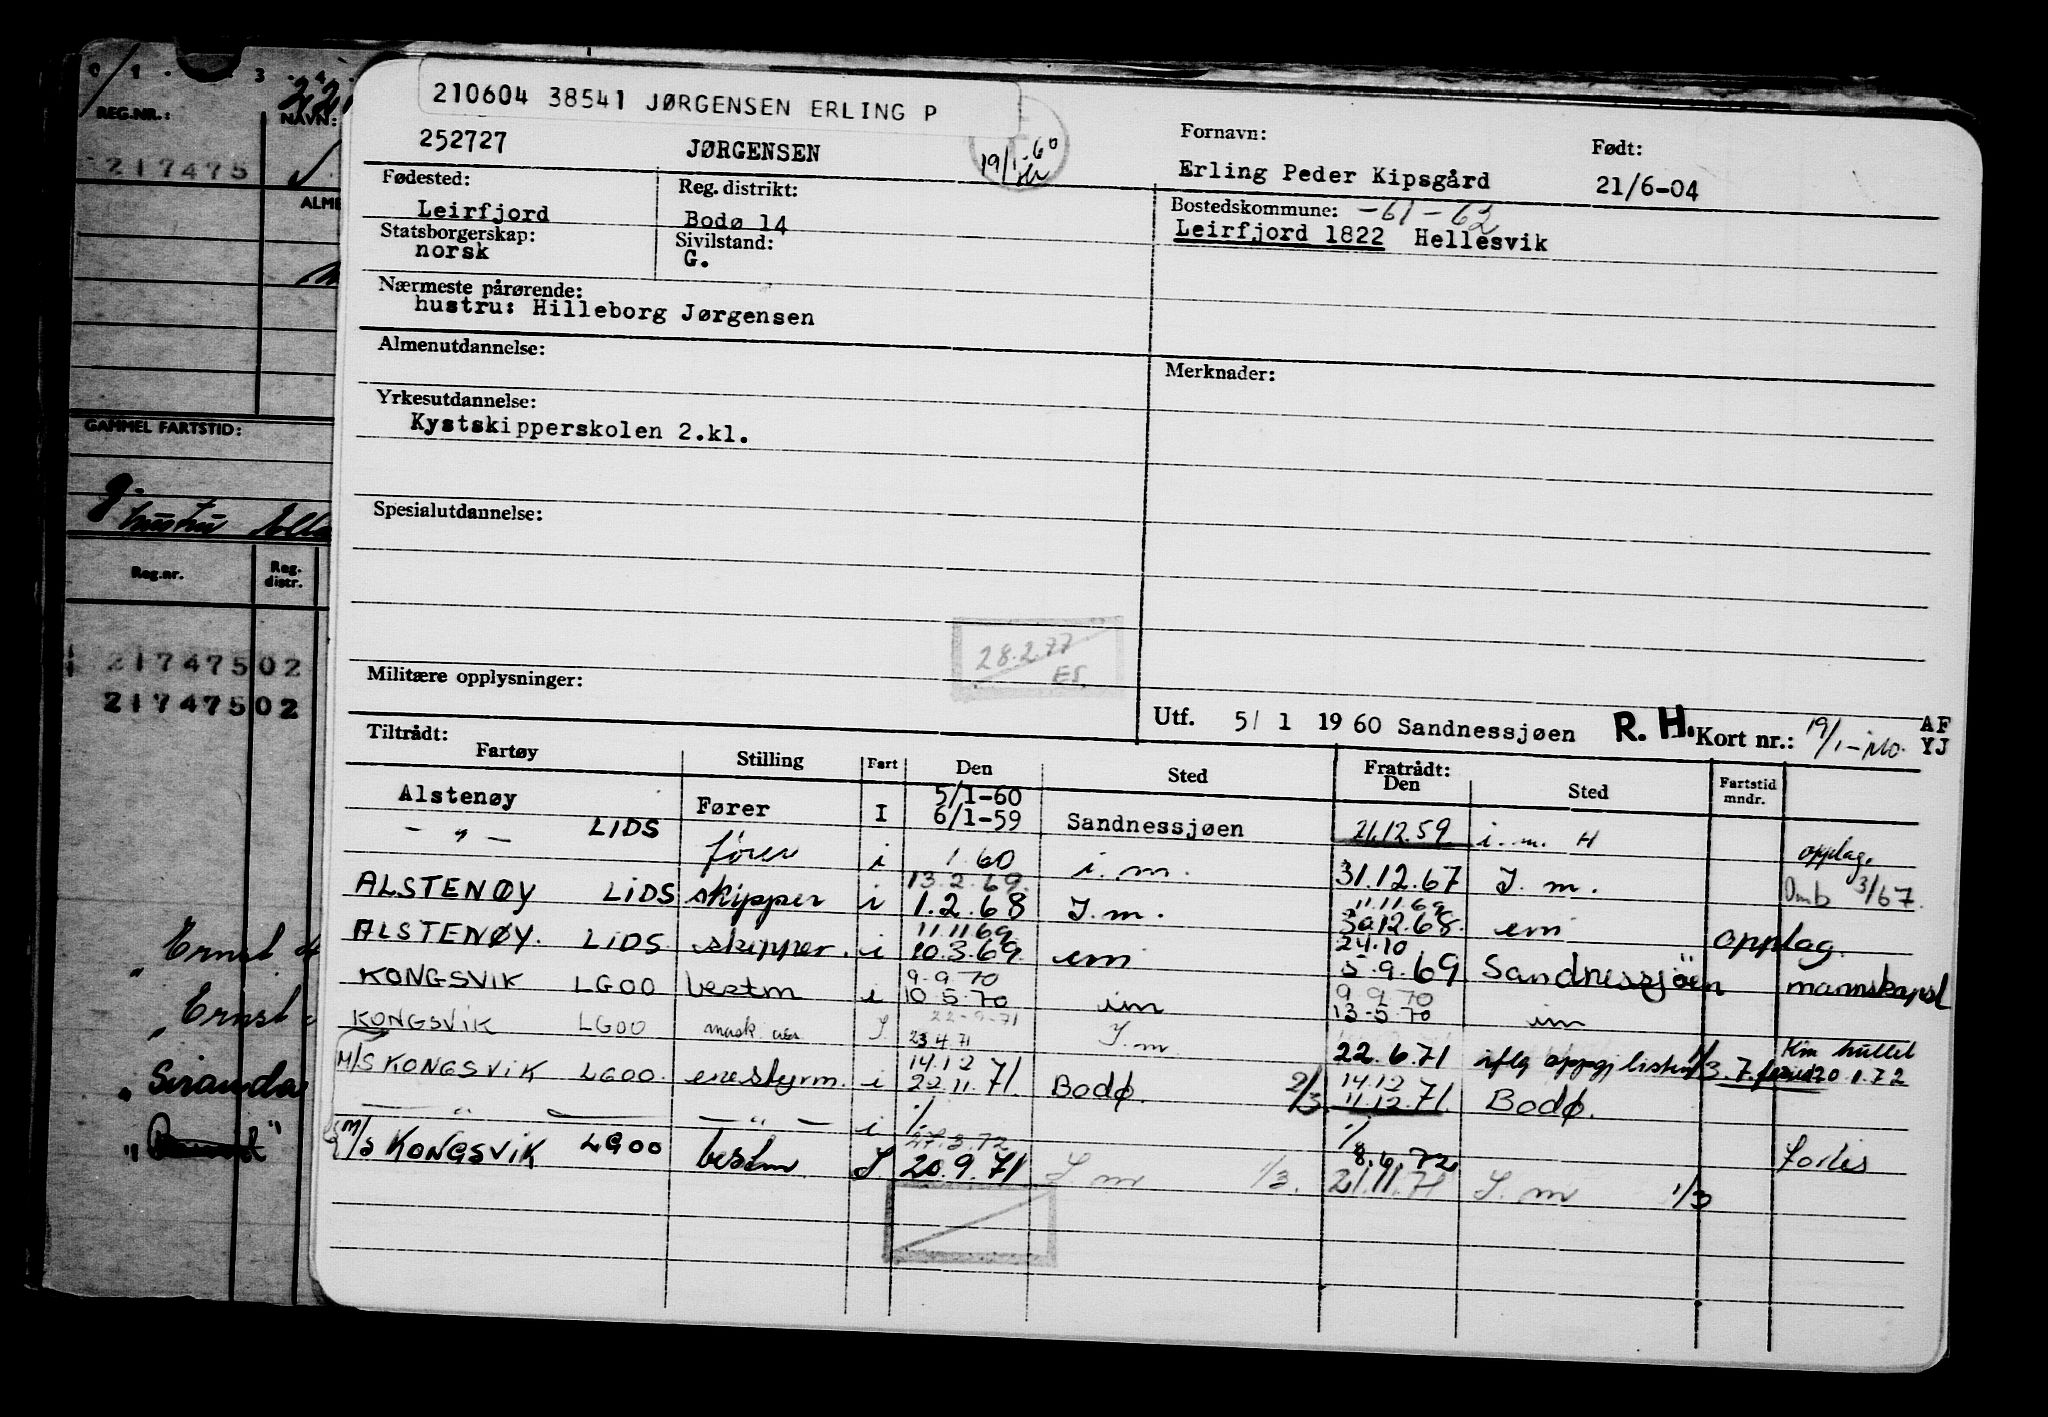 210604 38541 JØRGENSEN ERLING P
252727 JØRGENSEN 19/1-60
Fornavn: Født:
Erling Peder Kipsgård 21/6-04
Fødested: Reg. distrikt: Bostedskommune: -61-62
Leirfjord Bodø 14 Leirfjord 1822 Hellesvik
Statsborgerskap: Sivilstand:
norsk G.
Nærmeste pårørende:
hustru: Hilleborg Jørgensen
Almenutdannelse: Merknader:
Yrkesutdannelse:
Kystskipperskolen 2.kl.
Spesialutdannelse:
28.2.77
ES.
Militære opplysninger:
Utf. 5/ 1 19 60 Sandnessjøen R. H. Kort nr.: 19/1- AF YJ
Tiltrådt: Fratrådt:
Fartøy Stilling Fart Den Sted Den Sted Fartstid mndr.
Alstenøy Fører I 5/1-60
6/1-59 Sandnessjøen 21.12.59 i. m. H
- " - LIDS fører i 1.60 i. m. 31.12.67 I. m. opplag.
Omb 3/67.
ALSTENØY LIDS skipper i 13.2.69.
1.2.68 I.m. 11.11.69
30.12.68. em opplag.
ALSTENØY. LIDS skipper. i 11.11.69
10.3.69. em 24.10
5.9.69 Sandnessjøen mannskapsl
KONGSVIK LGOO bestm i 9.9.70
10.5.70 im 9.9.70
13-5.70 im
KONGSVIK LGOO I. 22-9-71
23.4.71 I.m 22.6.71 iflg oppgj listen 1/3.7.
20.1.72
M/S KONGSVIK LGOO. enestyrm. i 14.12
22.11.71. Bodø. 2/3. 14.12
11.12.71. Bodø.
- " - - " - i 1/
27.3.72 1/
8.6.72
M/S KONGSVIK LGOO bestm I. 20.9.71 I m 1/3. 21.11.71 I. m 1/3
REG.NR.: NAVN:
217475
GAMMEL FARTSTID:
g.
hustru
Reg.nr. Reg. distr.
217475 02
217475 02
" Ernst
" Ernst